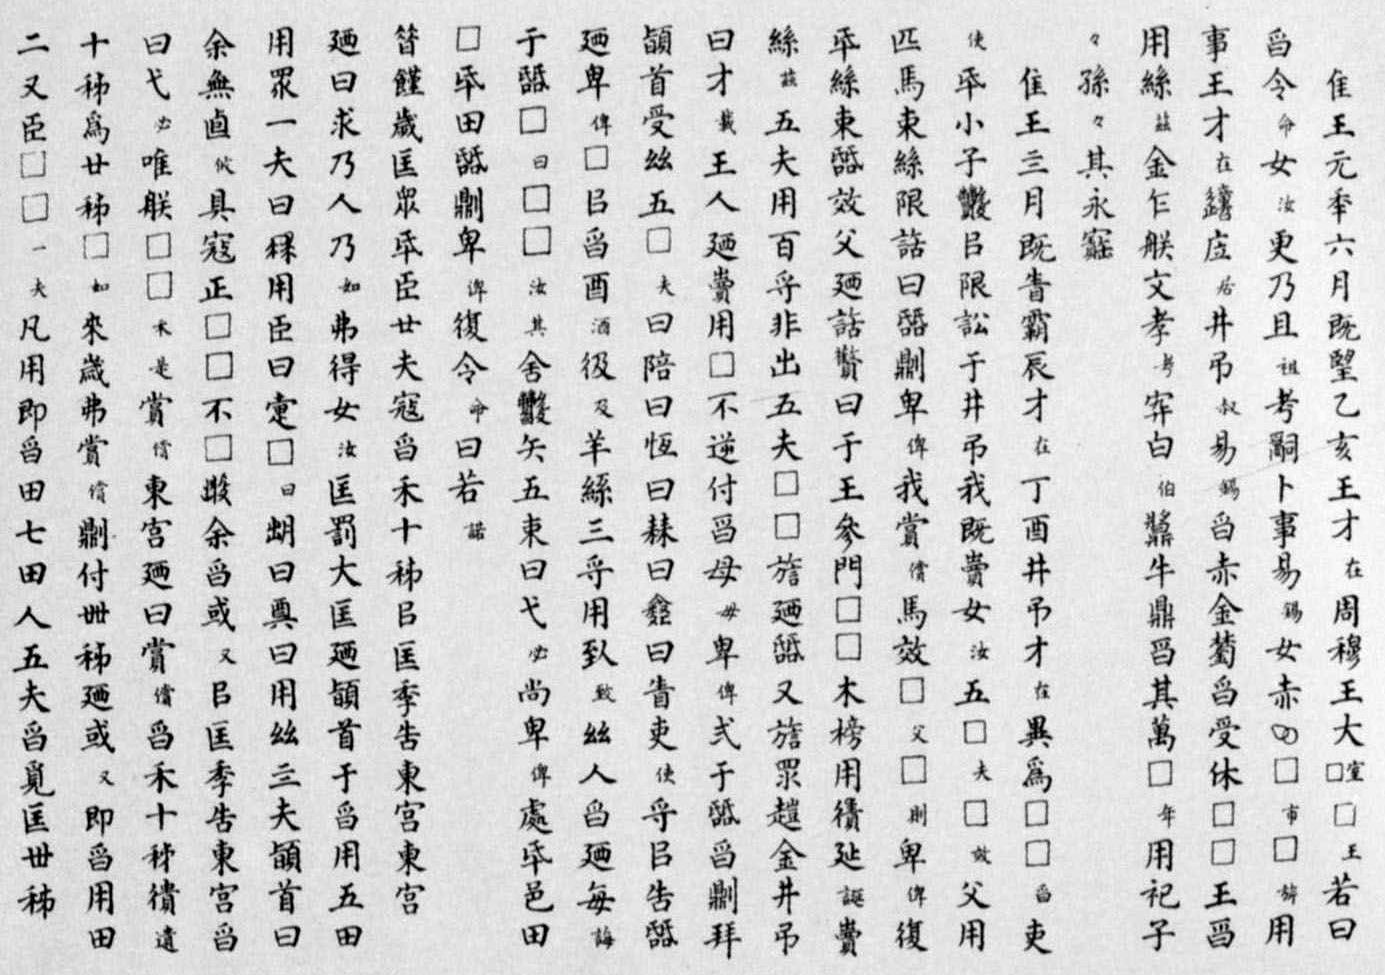 隹王元秊六月既朢乙亥王才在周穆王大□室□王若曰
曶令命女汝更乃且祖考𤔲卜事易錫女赤□市□旂用
事王才在㡴居井弔叔易錫曶赤金曶受休□□王曶
用絲茲金乍朕文孝考宲白伯牛鼎曶其萬□年用祀子
々孫々其永寶
隹王三月既眚霸辰才在丁酉井弔才在異爲□□曶吏
使氒小子㠯限訟于井弔我既賣女汝五□夫□效父用
匹馬束絲限誥曰卑俾我賞償馬效□父□則卑俾復
氒絲束效父廼誥曰于王參門□□木榜用誕賣
絲茲五夫用百寽非出五夫□□廼又眔金井弔
曰才載王人廼賣用□不逆付曶母毋卑俾弍于曶拜
䭫首受丝五□夫曰陪曰恆曰曰曰眚吏使寽㠯告
廼卑俾□㠯曶酉酒彶及羊絲三寽用致丝人曶廼每誨
于□曰□□汝其舍矢五束曰弋必尚卑俾處氒邑田
□氒田卑俾復令命曰若諾
昔饉歲匡眾氒臣廿夫寇曶禾十秭㠯匡季告東宮東宮
廼曰求乃人乃如弗得女汝匡罰大匡廼䭫首于曶用五田
用眾一夫曰用臣曰疐□曰朏曰奠曰用丝三夫䭫首曰
余無卣攸具寇正□□不□余曶或又㠯匡季告東宮曶
曰弋必唯朕□□禾是賞償東宮廼曰賞償曶禾十秭遺
十秭爲廿秭□如來歲弗賞償付卌秭廼或又即曶用田
二又臣□□一夫凡用即曶田七田人五夫曶覓匡卅秭